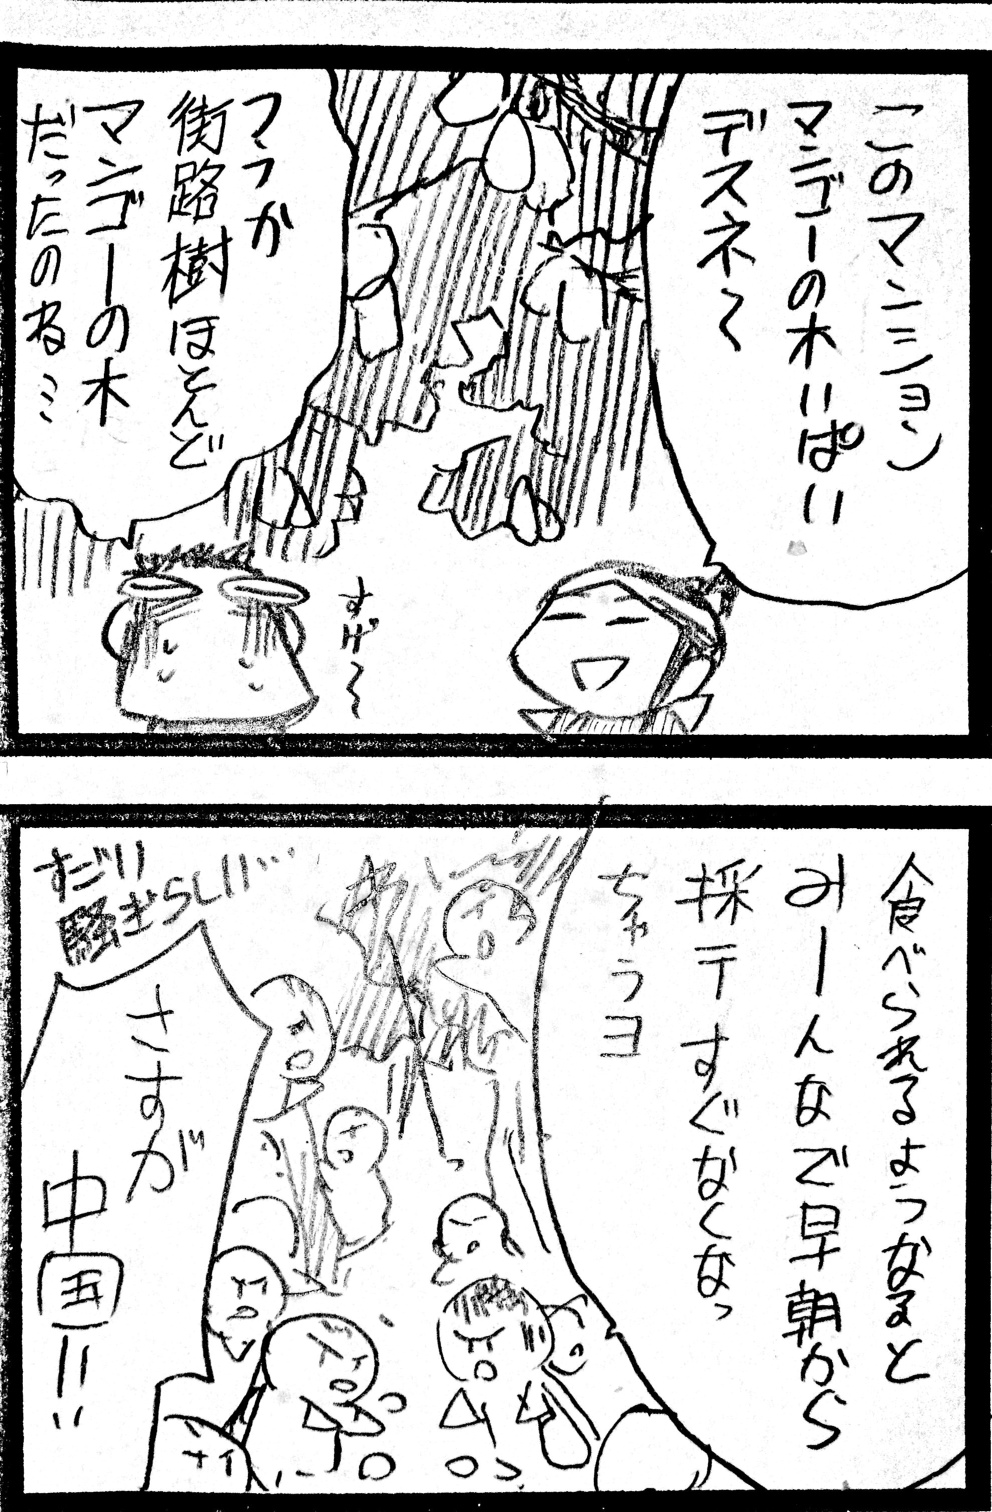 このマンション
マンゴーの木いぱい
デスネ〜
つつか
街路樹ほとんど
マンゴーの木
だったのね…
すげ〜
食べられるようなると
みーんなで早朝から
採テすぐなくなっ
ちゃうヨ
すごい
騒ぎらしい…
さすが
中国!!